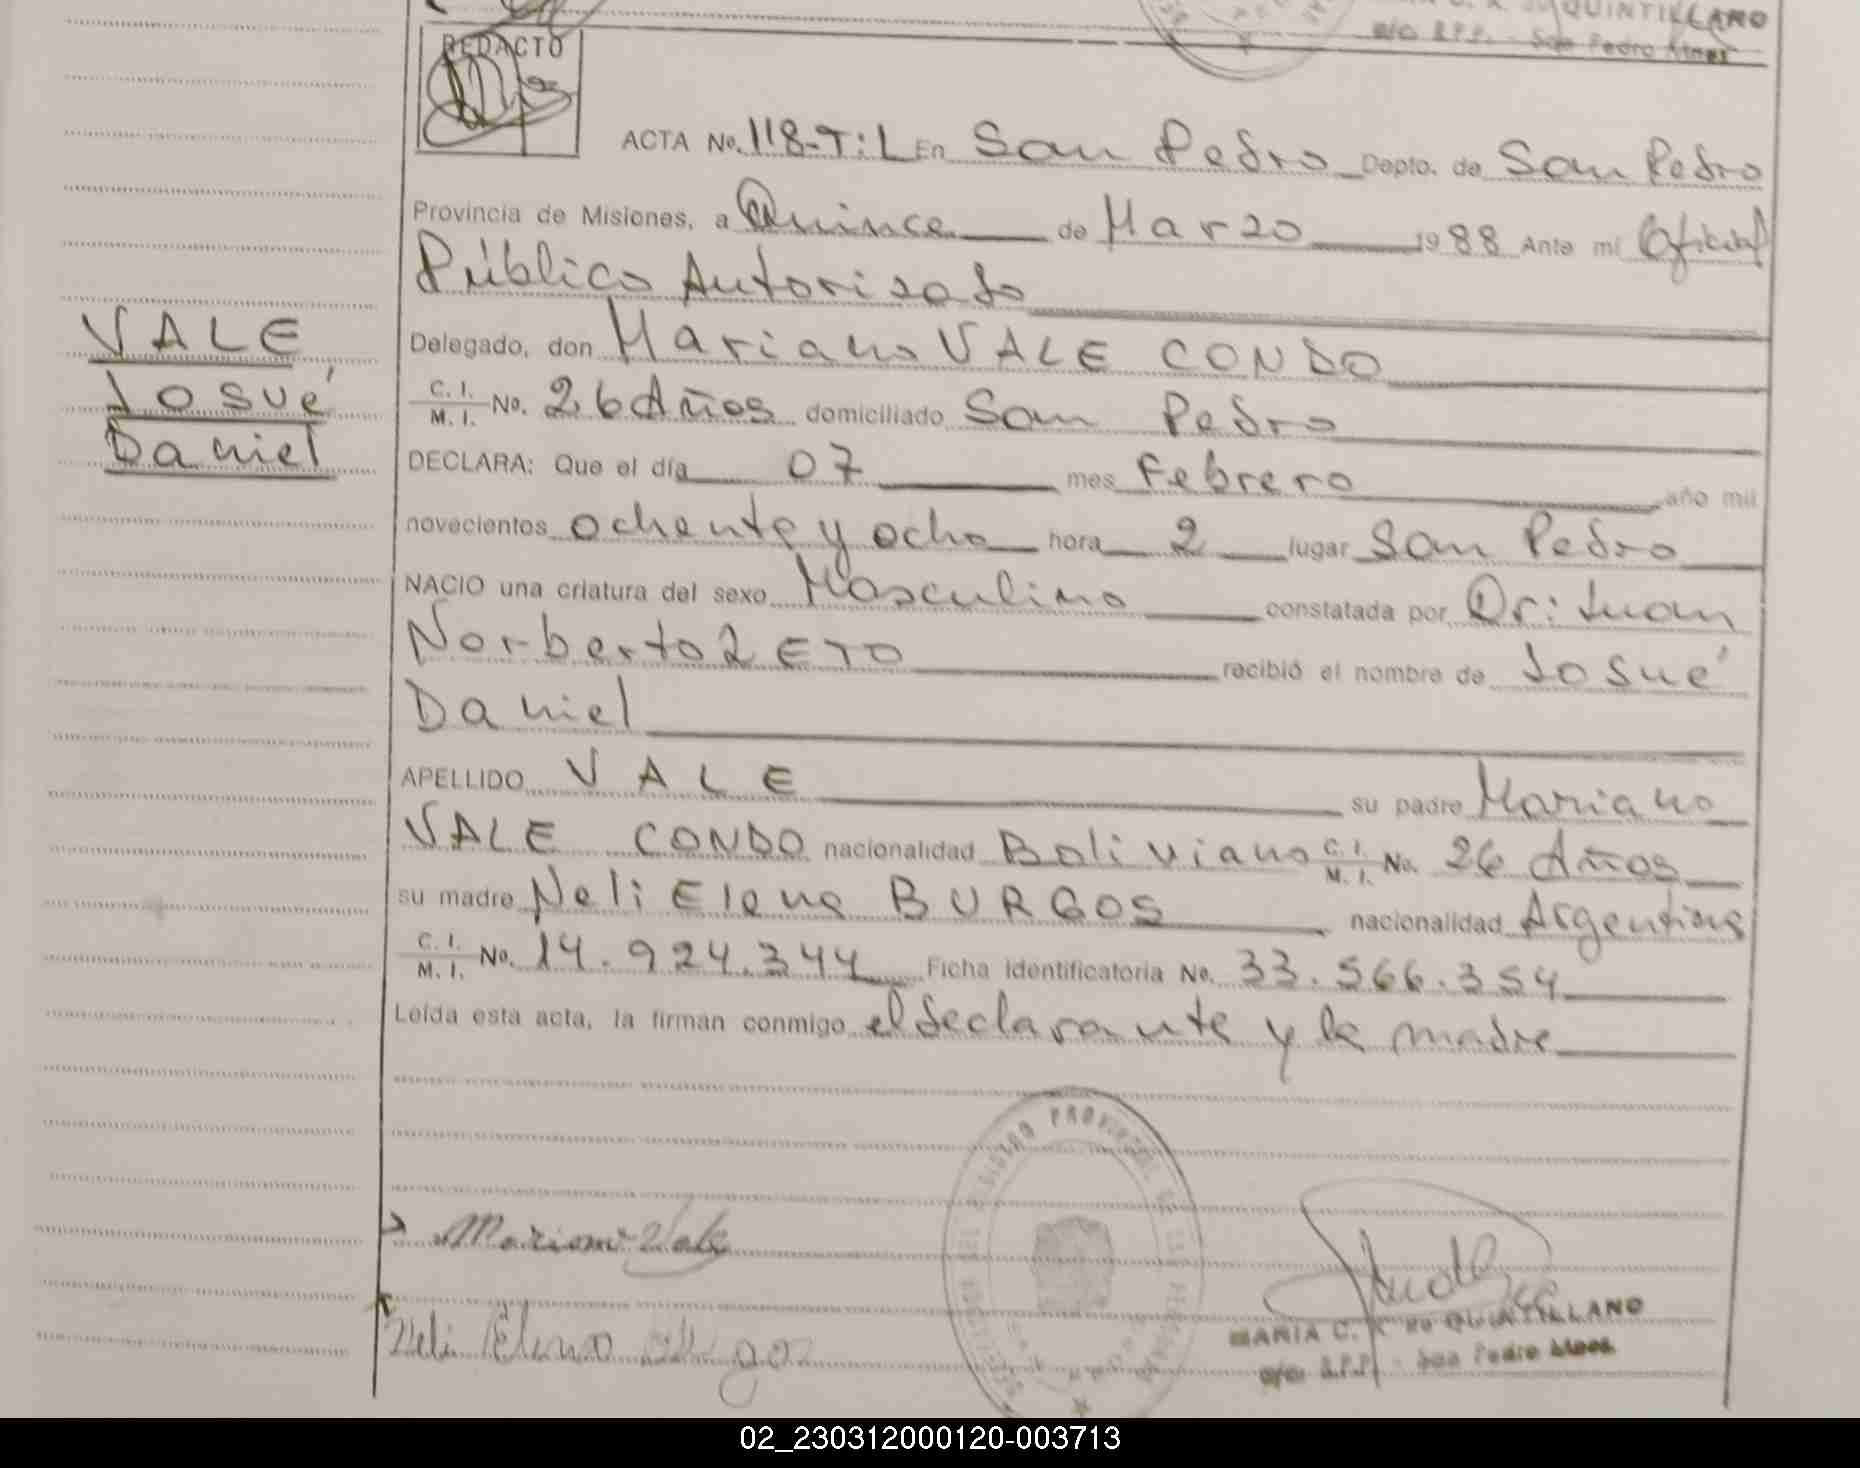 QUINTILLANO
San Pedro Mnes
REDACTO
ACTA No. 118-T:L En San Pedro Depto. de San Pedro
Provincia de Misiones, a Quince de Marzo 1988 Ante mí Oficial
Público Autorizado
VALE
Josué
Daniel
Delegado, don Mariano VALE CONDO
C. I. M. I. No. 26 Años domiciliado San Pedro
DECLARA: Que el día 07 mes Febrero año mil
novecientos ochenta y ocho hora 2 lugar San Pedro
NACIO una criatura del sexo Masculino constatada por Dr: Juan
Norberto ZETO recibió el nombre de Josué
Daniel
APELLIDO VALE su padre Mariano
VALE CONDO nacionalidad Boliviano C. I. M. I. No. 26 Años
su madre Neli Elena BURGOS nacionalidad Argentina
C. I. M. I. No. 14.924.344 Ficha Identificatoria No. 33.566.354
Leída esta acta, la firman conmigo el declarante y la madre
Mariano Vale
Neli Elena
MARIA C. K. de QUINTILLANO
San Pedro Mnes.
02_230312000120-003713